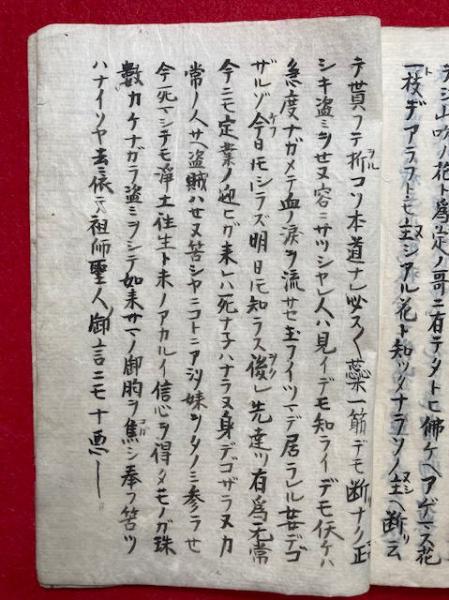 テシ山吹ノ花ト爲定ノ哥ニ有テタトヒ佛ケヘアゲマス花
一枝デアラフトモ主シアル花ト知ツタナラソノ主ヘ断云
テ貰フテ折コソ本道ナレ必ス〳〵蘂一筋デモ断ナク不正
シキ盗ミヲセヌ容ニサツシヤレ人ハ見イデモ知ライデモ仏ケハ
急度ナガメテ血ノ涙ヲ流サセ玉フイツマデ居ラレル娑デゴ
ザルゾ今日モシラズ明日モ知ラス後レ先達ツ有爲无常
今ニモ定業ノ迎ヒガ来レハ死ナ子ハナラヌ身デゴザラヌカ
常ノ人サヘ盗賊ハセヌ筈シヤニコトニアツ妹ツタノミ参ラせ
今死マシテモ淨土往生ト未ノアカルイ信心ヲ得タモノガ珠
數カケナガラ盗ミヲシテ如来サマノ御胸ヲ焦シ奉フ筈ツ
ハナイソヤ去ニ依テ祖師聖人ノ御言ニモ十悪